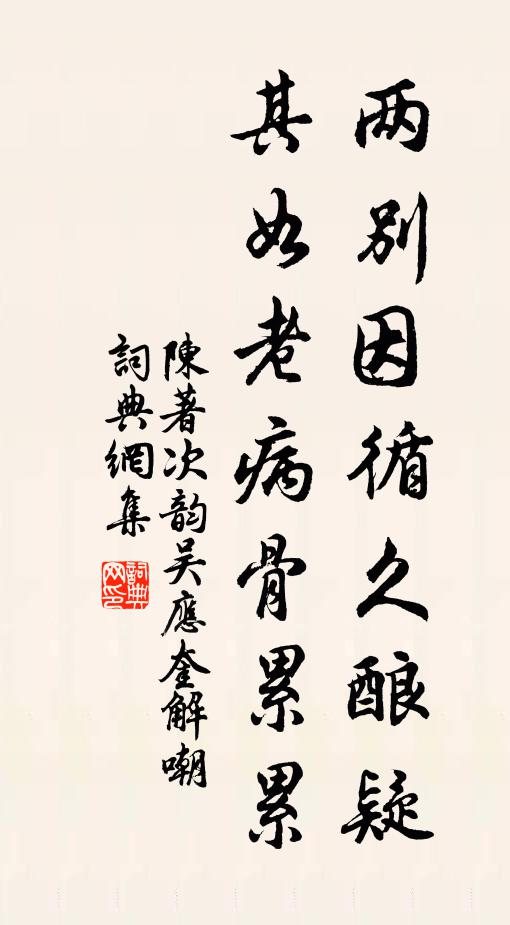 两别因循久酿疑
其如老病骨累累
陳著次韵吴應奎解嘲
詞典網集
詞典網印